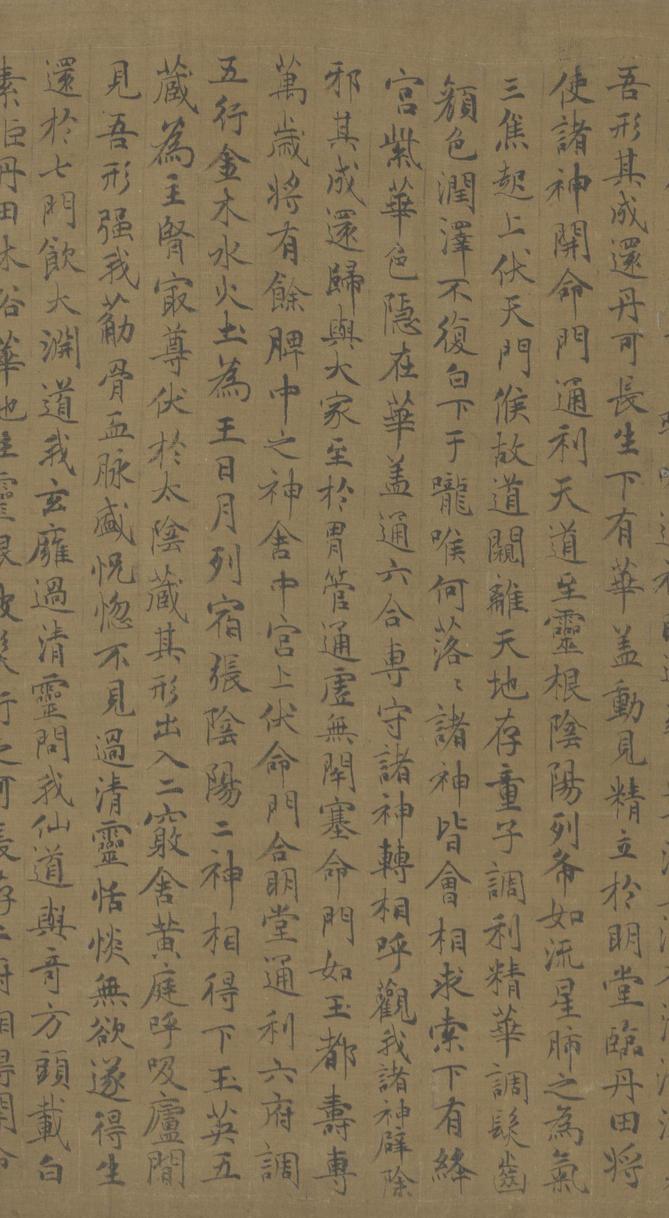 吾形其成還丹可長生下有華盖動見精立於明堂臨丹田將
使諸神開命門通利天道至靈根陰陽列布如流星肺之為氣
三焦起上伏天門候故道闚離天地存童子調利精華調髮齒
顏色潤澤不復白下于嚨喉何落〻諸神皆會相求索下有絳
宮紫華色隱在華盖通六合專守諸神轉相呼觀我諸神辟除
邪其成還歸與大家至於胃管通虛無閉塞命門如玉都壽專
萬歲將有餘脾中之神舍中宮上伏命門合明堂通利六府調
五行金木水火土為王日月列宿張陰陽二神相得下玉英五
藏為主腎冣尊伏於太陰藏其形出入二竅舍黃庭呼吸廬間
見吾形强我筋骨血脉盛怳惚不見過清靈恬惔無欲遂得生
還於七門飲大淵道我玄雍過清靈問我仙道與奇方頭載白
素距丹田沐浴華池生靈根被髮行之可長存二府相得開命